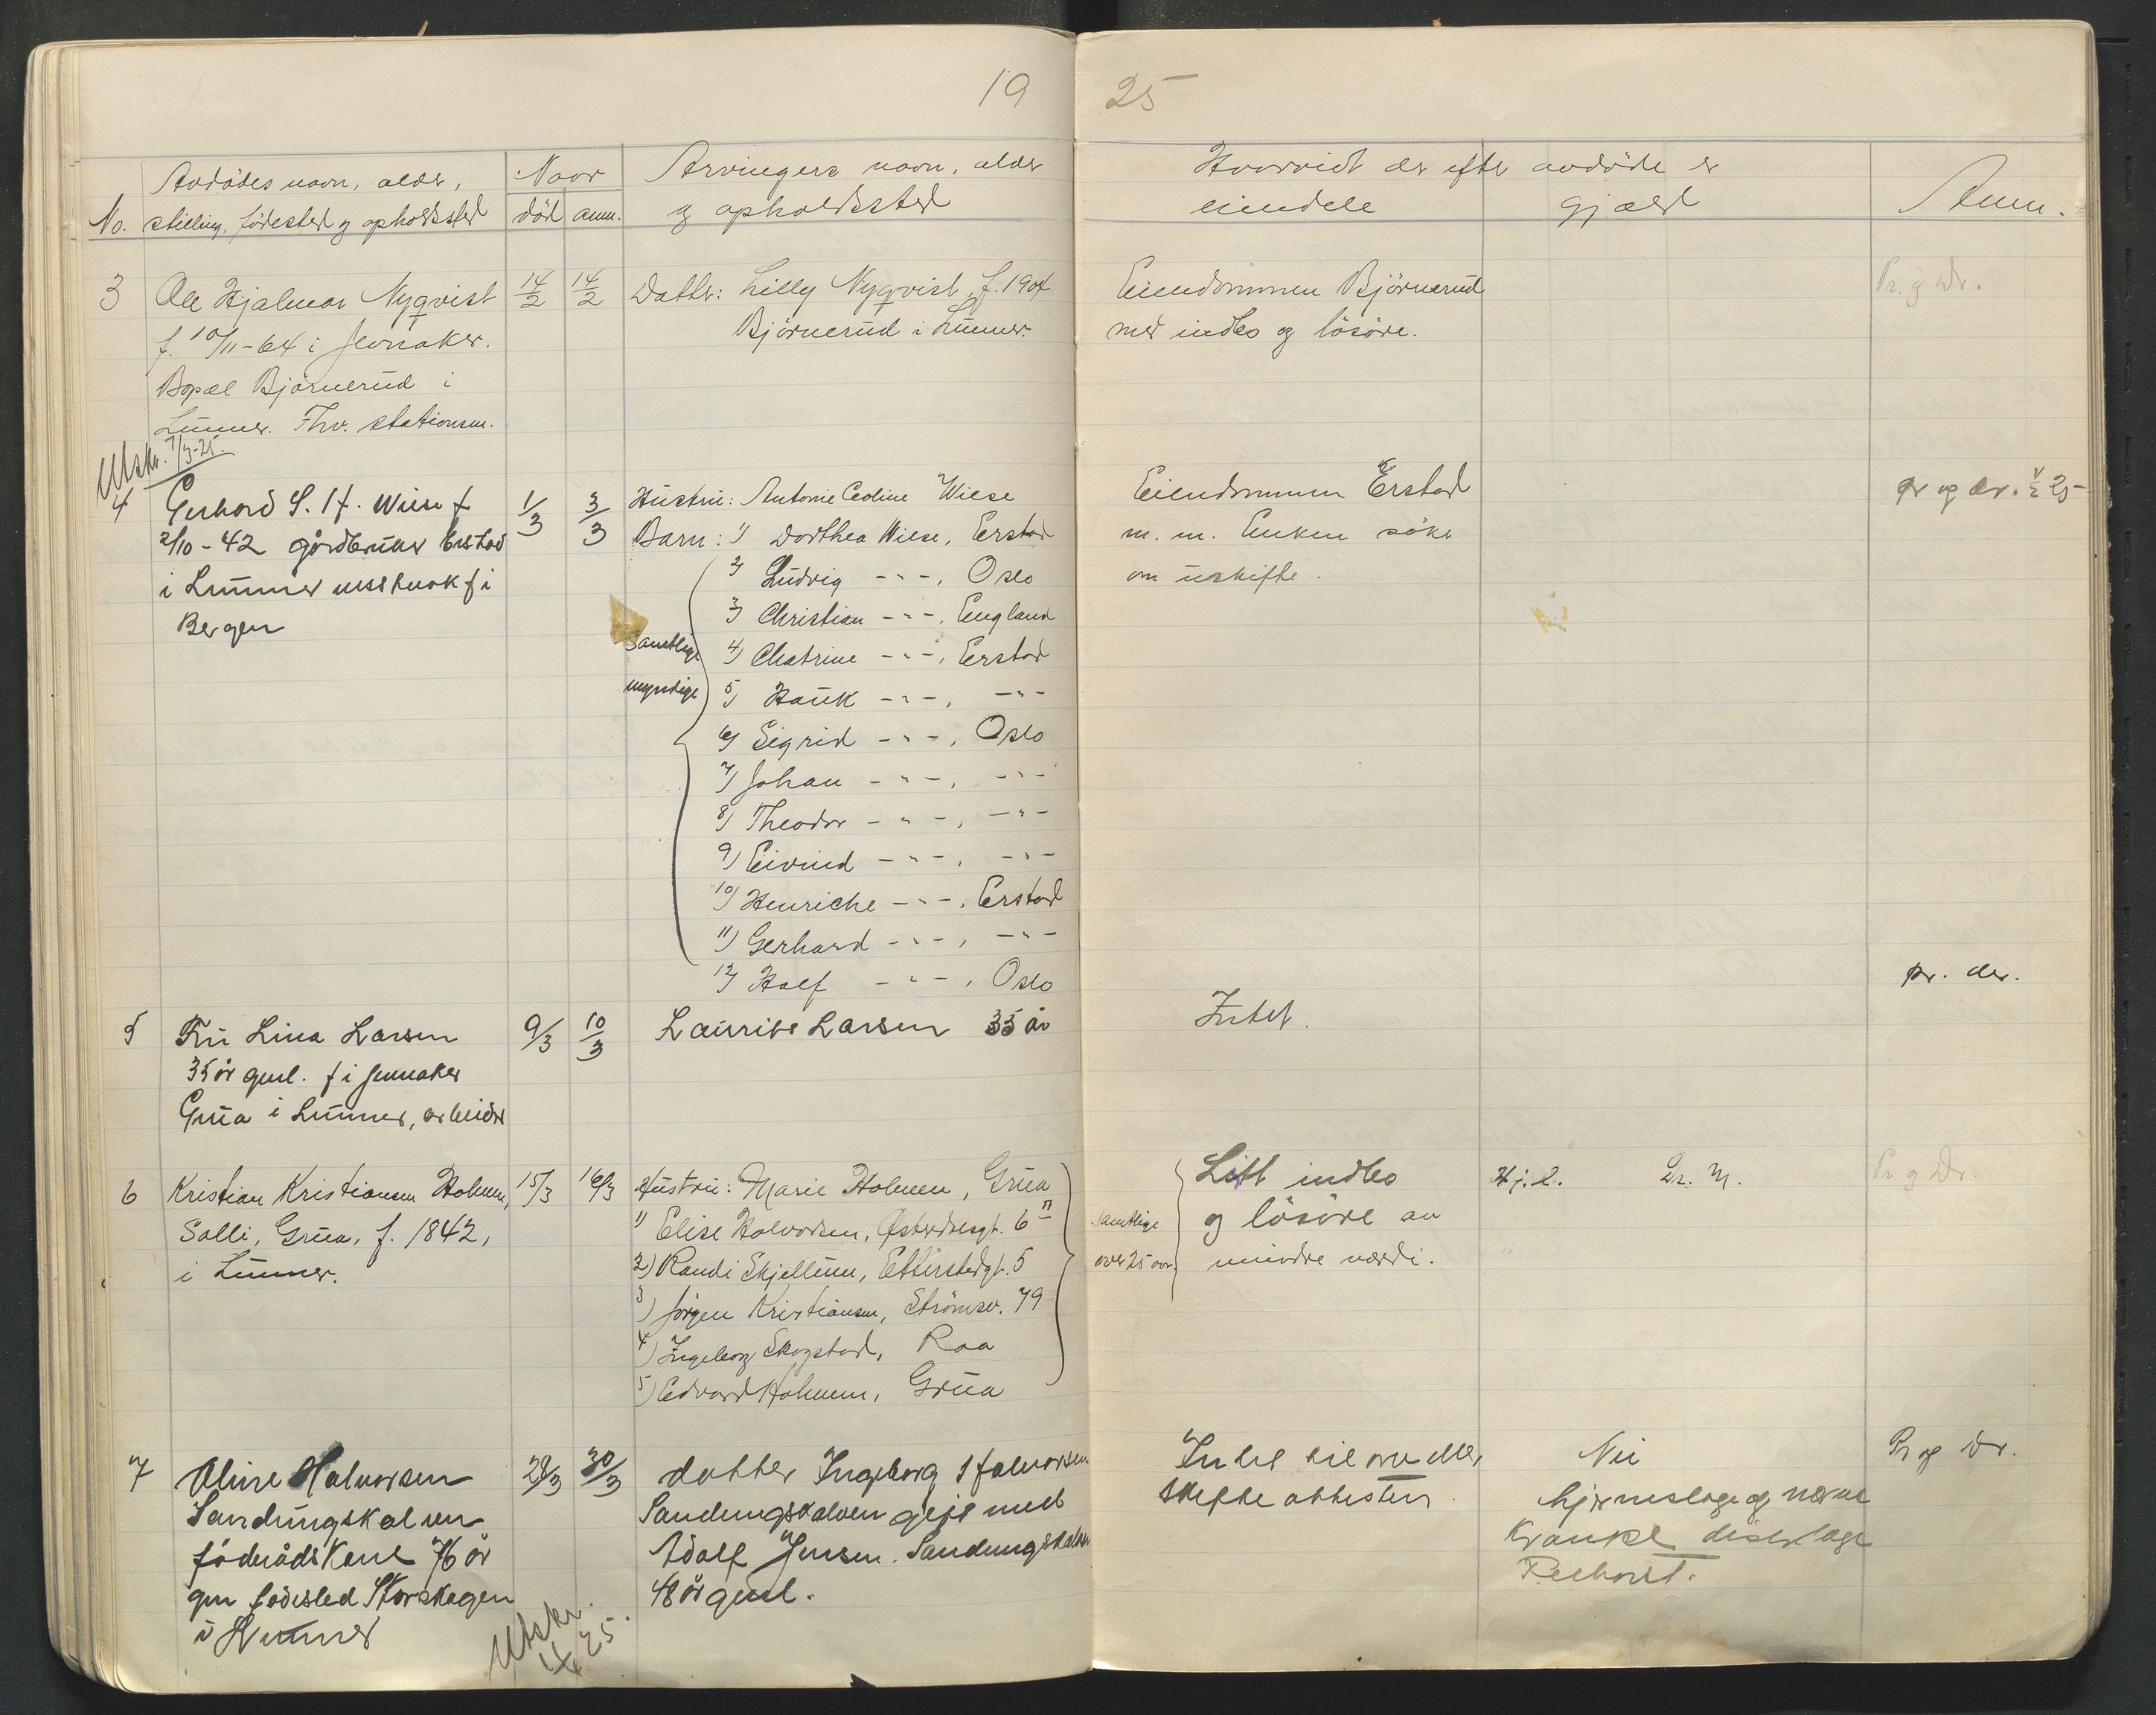 19 25
Avdödes navn, alder,
No. stilling, födested og opholdssted
Naar
död anm.
Arvingers navn, alder
og opholdssted
Hvorvidt der efter avdöde er
eiendele gjæld
Anm.
3 Ole Hjalmar Nyqvist 14/2 14/2 Datter: Lilly Nyqvist, f. 1904 Eiendommen Björnerud Pr. og Dr.
f. 10/11-64 i Jevnaker. Björnerud i Lunner. med indbo og lösöre.
Bopæl Björnerud i
Lunner. Fhv. stationsm.
Utskr. 7/3-25.
4 Gerhard S. H. Wiese f 1/3 3/3 Hustru: Antonie Cecline Wiese Eiendommen Erstad pr og dr. 25
2/10-42 gårdbruker Erstad Barn: 1) Dorthea Wiese, Erstad m. m. Enken söker
i Lunner f i 2) Ludvig -"-, Oslo om uskifte.
Bergen 3) Christian -"-, England
Samtlige 4) Chatrine -"-, Erstad
myndige 5) Hauk -"-, -"-
6) Sigrid -"-, Oslo
7) Johan -"-, -"-
8) Theodor -"-, -"-
9) Eivind -"-, -"-
10) Henriche -"-, Erstad
11) Gerhard -"-, -"-
12) Half -"-, Oslo
pr. dr.
5 Fru Lina Larsen 9/3 10/3 Laurits Larsen 35 år Intet.
35 år gml. f i Jevnaker
Grua i Lunner, arbeider
6 Kristian Kristiansen Holmen, 15/3 16/3 Hustru: Marie Holmen, Grua Litt indbo Hj. l. Gr. N. Pr. og Dr.
Solli, Grua, f. 1842, 1) Elise Halvorsen, Østerdalsgt. 6 II samtlige og lösöre av
i Lunner. 2) Randi Skjellum, Etterstadgt. 5 over 25 aar. mindre værdi.
3) Jörgen Kristiansen, Strömsv. 79
4) Ingeborg Skogstad, Roa
5) Edvard Holmen, Grua
7 Oline Halvorsen 28/3 30/3 datter Ingeborg Halvorsen Intet til overs eller Nei Pr og Dr.
Sandungskalven Sandungskalven gift med skifteattesten. hjerneslag og nerve
föderådskone 76 år Adolf Jensen. Sandungskalven Kranke distr.læge
gm födested Storskogen 48 år gml. Reehorst.
i Lunner
Utskr.
1/4 25.